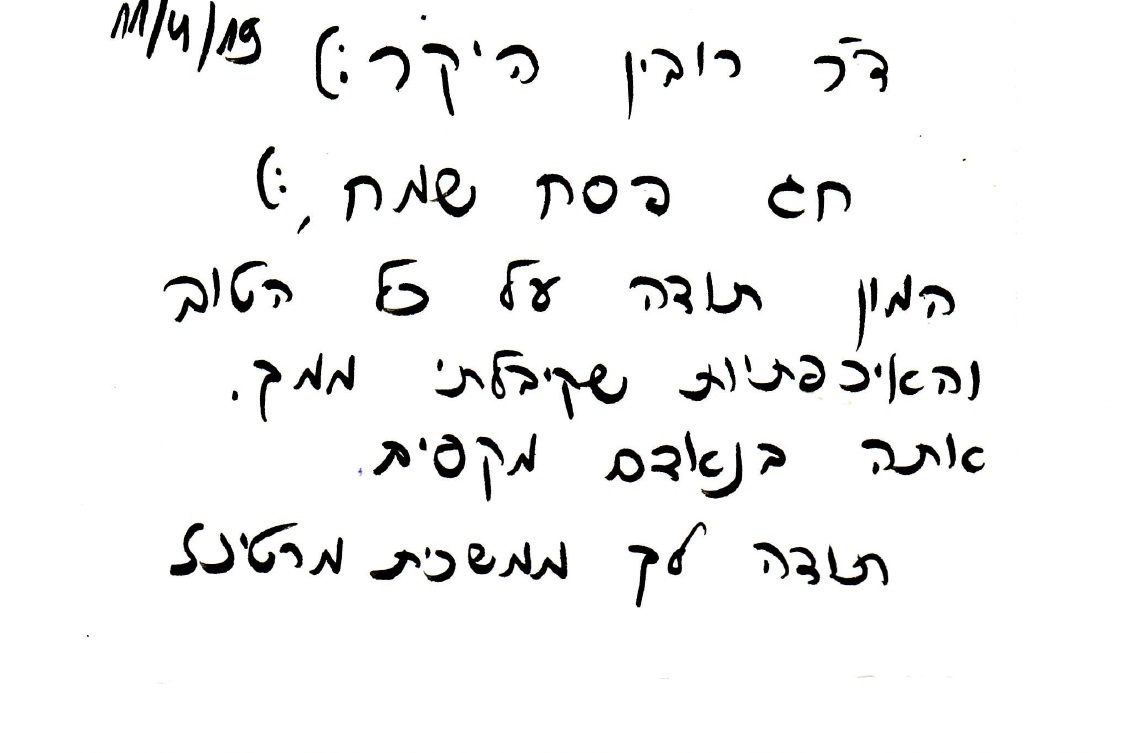 11/4/19
ד"ר רובין היקר :)
חג פסח שמח, :)
המון תודה על כל הטוב
והאיכפתיות שקיבלתי ממך.
אתה בנאדם מקסים.
תודה לך ממשכית מרטינז